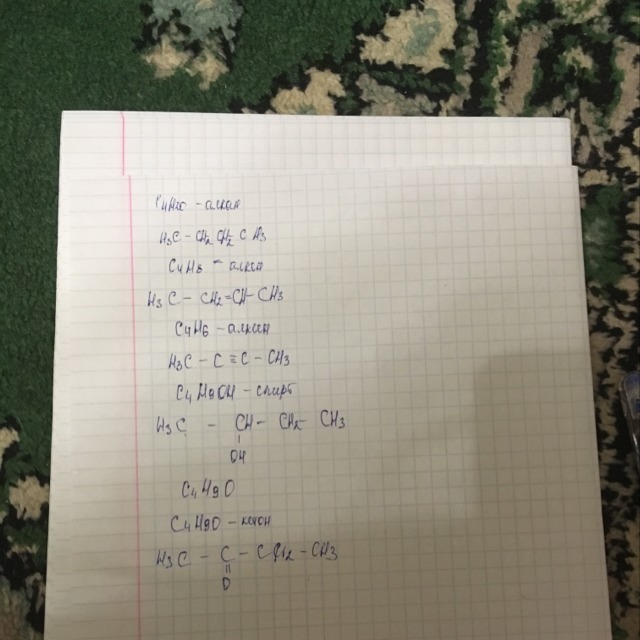 C4H10 - алкан
H3C - CH2 CH2 C H3
C4H8 - алкен
H3 C - CH2=CH- CH3
C4H6 - алкин
H3C - C ≡ C - CH3
C4 H9OH - спирт
H3 C - CH - CH2- CH3
OH
C4 H8 O
C4 H8O - кетон
H3C - C - CH2 - CH3
O